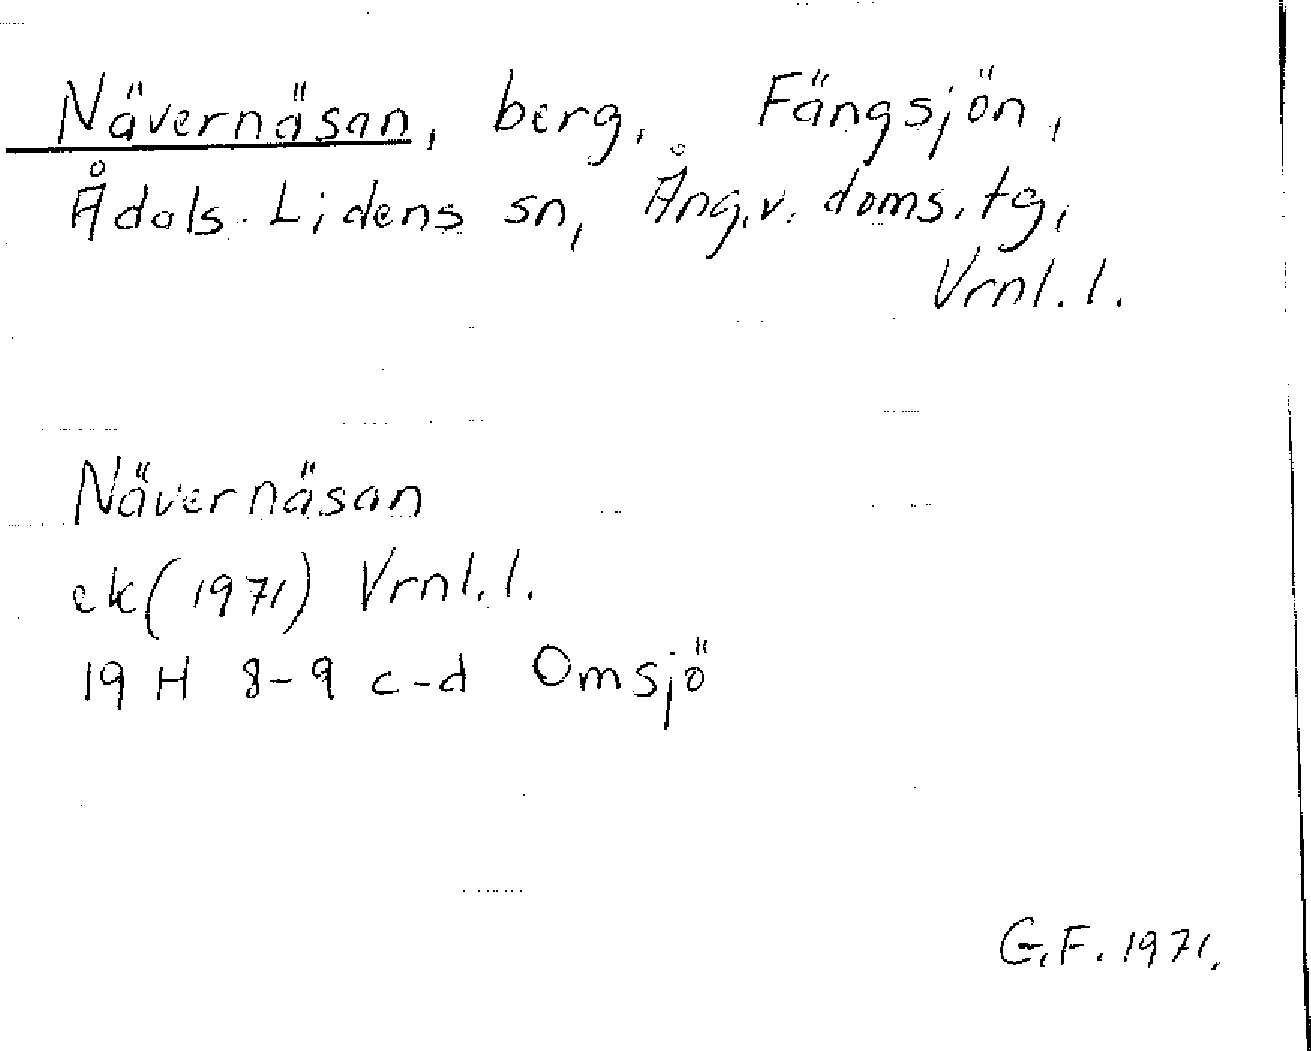 Nävernäsan, berg, Fängsjön,
Ådals-Lidens sn, Ång.v. doms.tg,
Vrnl. l.
Nävernäsan
ek (1971) Vrnl. l.
19 H 8-9 c-d Omsjö
G.F. 1971.